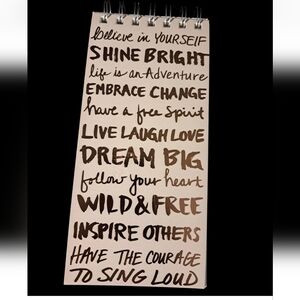 believe in YOURSELF
SHINE BRIGHT
life is an Adventure
EMBRACE CHANGE
have a free Spirit
LIVE LAUGH LOVE
DREAM BIG
follow your heart
WILD & FREE
INSPIRE OTHERS
HAVE THE COURAGE
TO SING LOUD